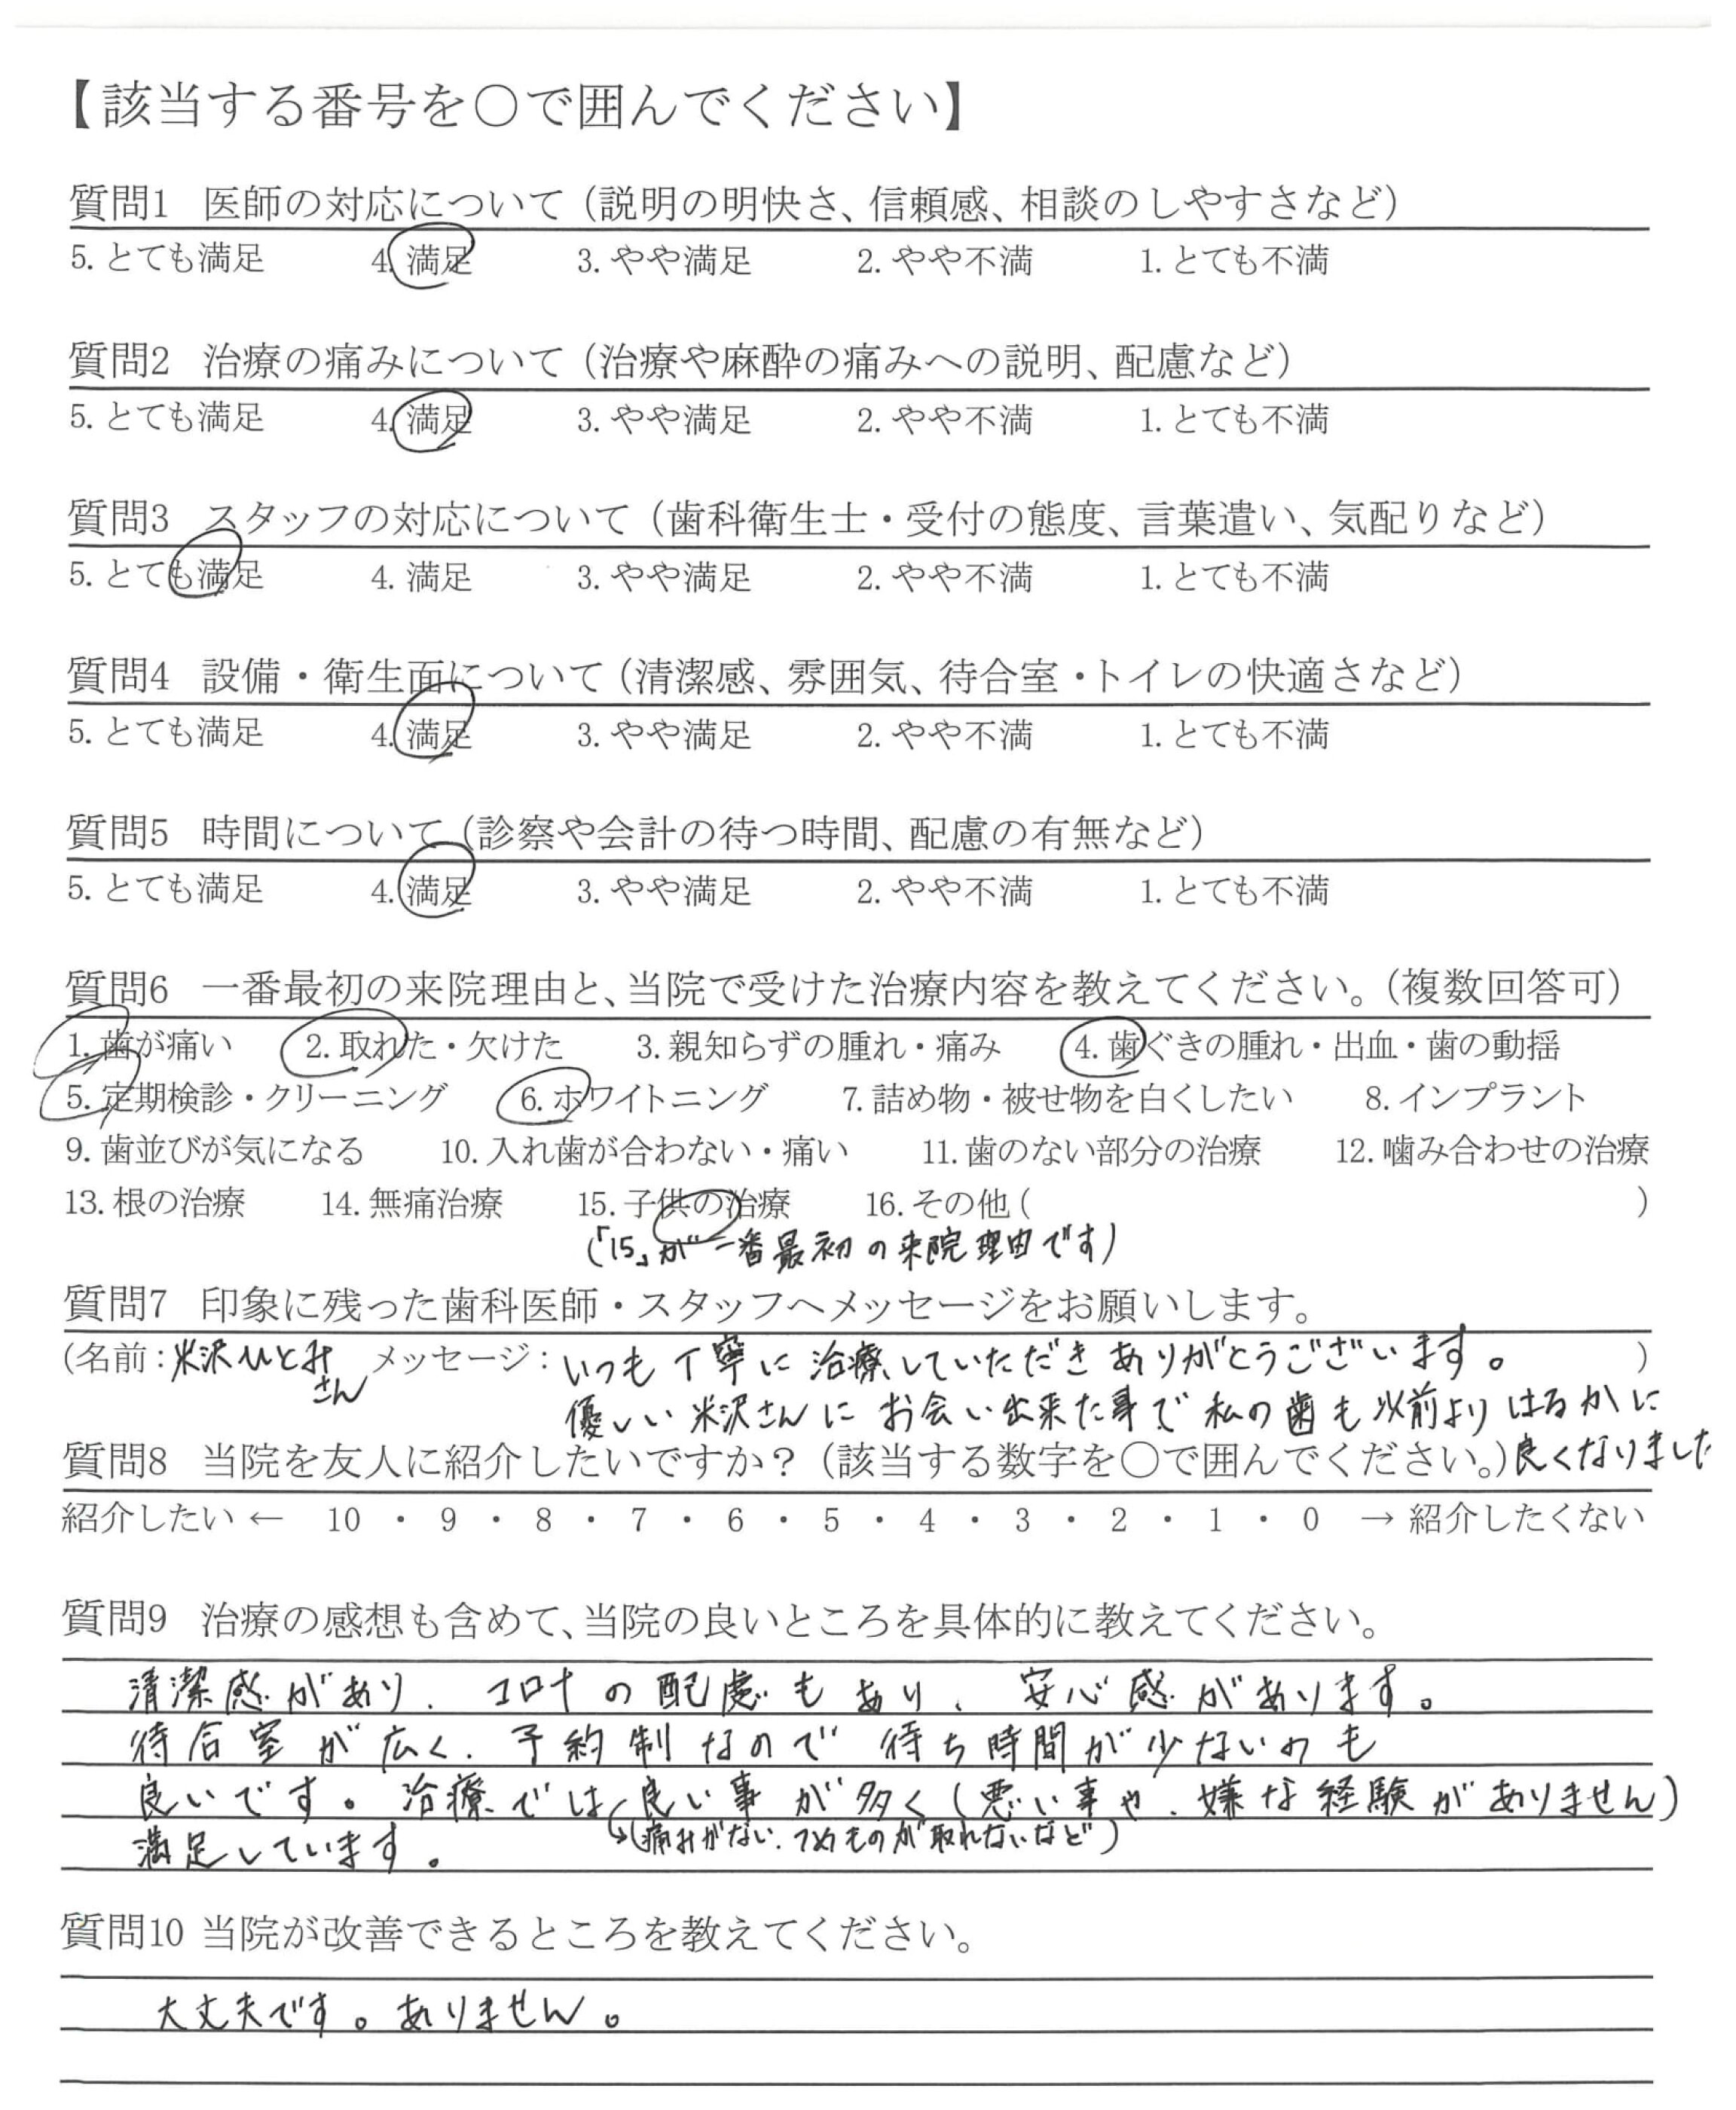 【該当する番号を○で囲んでください】
質問1 医師の対応について(説明の明快さ、信頼感、相談のしやすさなど)
5. とても満足 4. 満足 3. やや満足 2. やや不満 1. とても不満
質問2 治療の痛みについて(治療や麻酔の痛みへの説明、配慮など)
5. とても満足 4. 満足 3. やや満足 2. やや不満 1. とても不満
質問3 スタッフの対応について(歯科衛生士・受付の態度、言葉遣い、気配りなど)
5. とても満足 4. 満足 3. やや満足 2. やや不満 1. とても不満
質問4 設備・衛生面について(清潔感、雰囲気、待合室・トイレの快適さなど)
5. とても満足 4. 満足 3. やや満足 2. やや不満 1. とても不満
質問5 時間について(診察や会計の待つ時間、配慮の有無など)
5. とても満足 4. 満足 3. やや満足 2. やや不満 1. とても不満
質問6 一番最初の来院理由と、当院で受けた治療内容を教えてください。(複数回答可)
1. 歯が痛い 2. 取れた・欠けた 3. 親知らずの腫れ・痛み 4. 歯ぐきの腫れ・出血・歯の動揺
5. 定期検診・クリーニング 6. ホワイトニング 7. 詰め物・被せ物を白くしたい 8. インプラント
9. 歯並びが気になる 10. 入れ歯が合わない・痛い 11. 歯のない部分の治療 12. 噛み合わせの治療
13. 根の治療 14. 無痛治療 15. 子供の治療 16. その他( )
(「15」が一番最初の来院理由です)
質問7 印象に残った歯科医師・スタッフへメッセージをお願いします。
(名前:米沢ひとみさん メッセージ:いつも丁寧に治療していただきありがとうございます。 )
優しい米沢さんにお会い出来た事で私の歯も以前よりはるかに
良くなりました
質問8 当院を友人に紹介したいですか?(該当する数字を○で囲んでください。)
紹介したい ← 10 ・ 9 ・ 8 ・ 7 ・ 6 ・ 5 ・ 4 ・ 3 ・ 2 ・ 1 ・ 0 → 紹介したくない
質問9 治療の感想も含めて、当院の良いところを具体的に教えてください。
清潔感があり、コロナの配慮もあり、安心感があります。
待合室が広く、予約制なので待ち時間が少ないのも
良いです。治療では良い事が多く(悪い事や、嫌な経験がありません)
(痛みがない、つめものが取れないなど)
満足しています。
質問10 当院が改善できるところを教えてください。
大丈夫です。ありません。